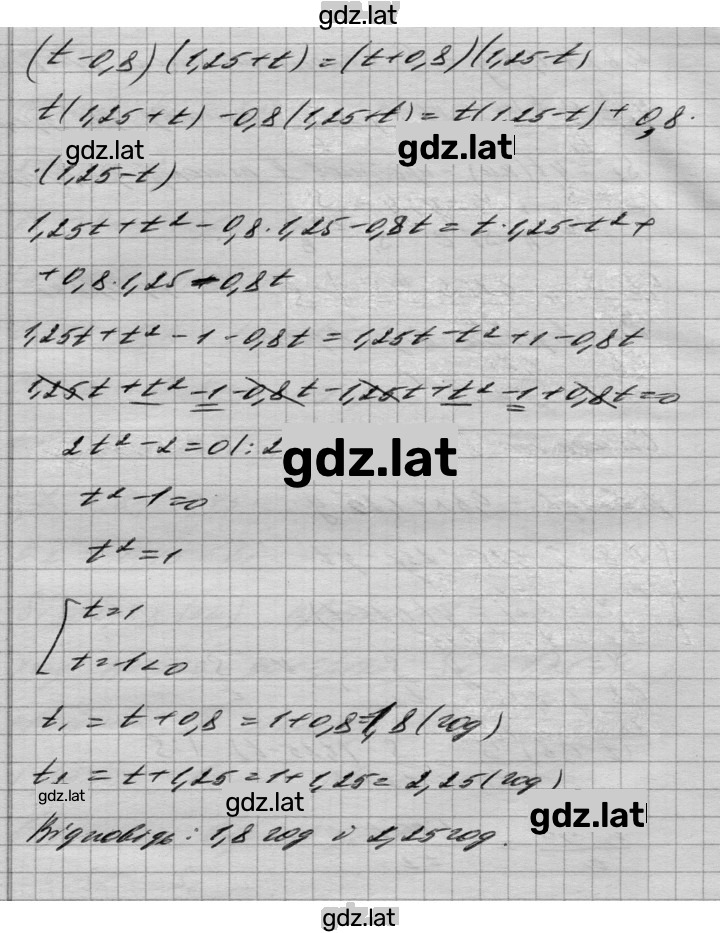 gdz.lat
(t-0,8)(1,25+t)=(t+0,8)(1,25-t)
t(1,25+t)-0,8(1,25+t)=t(1.25-t)+0,8·
gdz.lat
gdz.lat
·(1,25-t)
1,25t+t²-0,8·1,25-0,8t=t·1,25-t²+
+0,8·1,25-0,8t
1,25t+t²-1-0,8t=1,25t-t²+1-0,8t
1,25t+t²-1-0,8t-1,25t+t²-1+0,8t=0
2t²-2=0|:2
gdz.lat
t²-1=0
t²=1
[t=1
t=-1<0
t₁=t+0,8=1+0,8=1,8(год)
t₂=t+1,25=1+1,25=2,25(год)
gdz.lat
gdz.lat
gdz.lat
Відповідь: 1,8 год і 2,25 год.
gdz.lat